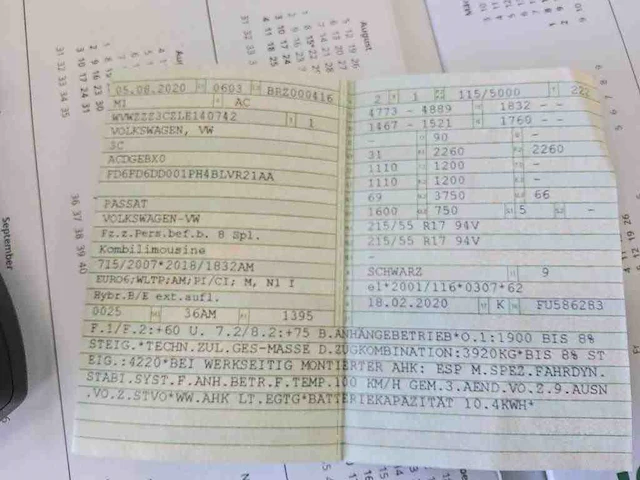 05.08.2020 0603 BRZ000416
M1 AC
WVWZZZ3CZLE140742 1
VOLKSWAGEN, VW
3C
ACDGEBX0
FD6FD6DD001PH4BLVR21AA
PASSAT
VOLKSWAGEN-VW
Fz.z.Pers.bef.b. 8 Spl.
Kombilimousine
715/2007*2018/1832AM
EURO6;WLTP;AM;PI/CI; M, N1 I
Hybr.B/E ext.aufl.
0025 36AM 1395
2 1 115/5000 222
4773 - 4889 1832 - -
1467 - 1521 1760 - -
- 90 -
31 2260 2260
1110 1200 -
1110 1200 -
69 3750 66
1600 750 5 -
215/55 R17 94V
215/55 R17 94V
-
SCHWARZ 9
e1*2001/116*0307*62
18.02.2020 K FU586283
F.1/F.2:+60 U. 7.2/8.2:+75 B.ANHÄNGEBETRIEB*O.1:1900 BIS 8%
STEIG.*TECHN.ZUL.GES-MASSE D.ZUGKOMBINATION:3920KG*BIS 8% ST
EIG.:4220*BEI WERKSEITIG MONTIERTER AHK: ESP M.SPEZ.FAHRDYN.
STABI.SYST.F.ANH.BETR.F.TEMP.100 KM/H GEM.3.AEND.VO.Z.9.AUSN
.VO.Z.STVO*WW.AHK LT.EGTG*BATTERIEKAPAZITÄT 10.4KWH*
August
September